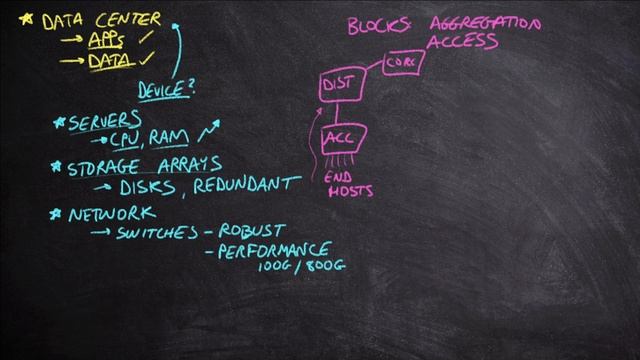 * DATA CENTER
→ APPs ✓
→ DATA ✓
DEVICE?
* SERVERS
→ CPU, RAM
* STORAGE ARRAYS
→ DISKS, REDUNDANT
* NETWORK
→ SWITCHES - ROBUST
- PERFORMANCE
100G/800G
BLOCKS: AGGREGATION
ACCESS
CORE
DIST
ACC
END
HOSTS